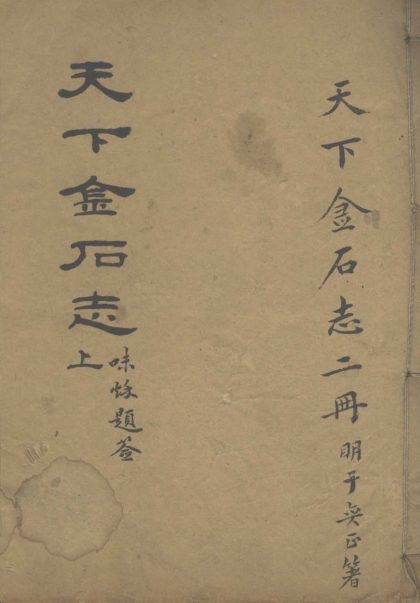 天下金石志二冊明于奕正箸
天下金石志上
味題簽